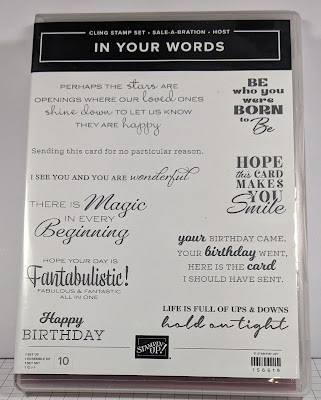 CLING STAMP SET • SALE-A-BRATION • HOST
IN YOUR WORDS
PERHAPS THE stars ARE
OPENINGS WHERE OUR loved ONES
shine down TO LET US KNOW
THEY ARE happy
BE
who you
were
BORN
to Be
Sending this card for no particular reason.
I SEE YOU AND YOU ARE wonderful
HOPE
this CARD
MAKES
YOU
Smile
THERE IS Magic
IN EVERY
Beginning
your BIRTHDAY CAME,
YOUR birthday WENT,
HERE IS THE card
I SHOULD HAVE SENT.
HOPE YOUR DAY IS
Fantabulistic!
FABULOUS & FANTASTIC
ALL IN ONE
Happy
BIRTHDAY
LIFE IS FULL OF UPS & DOWNS
hold on tight
10
STAMPIN' UP!
© STAMPIN' UP!
156619